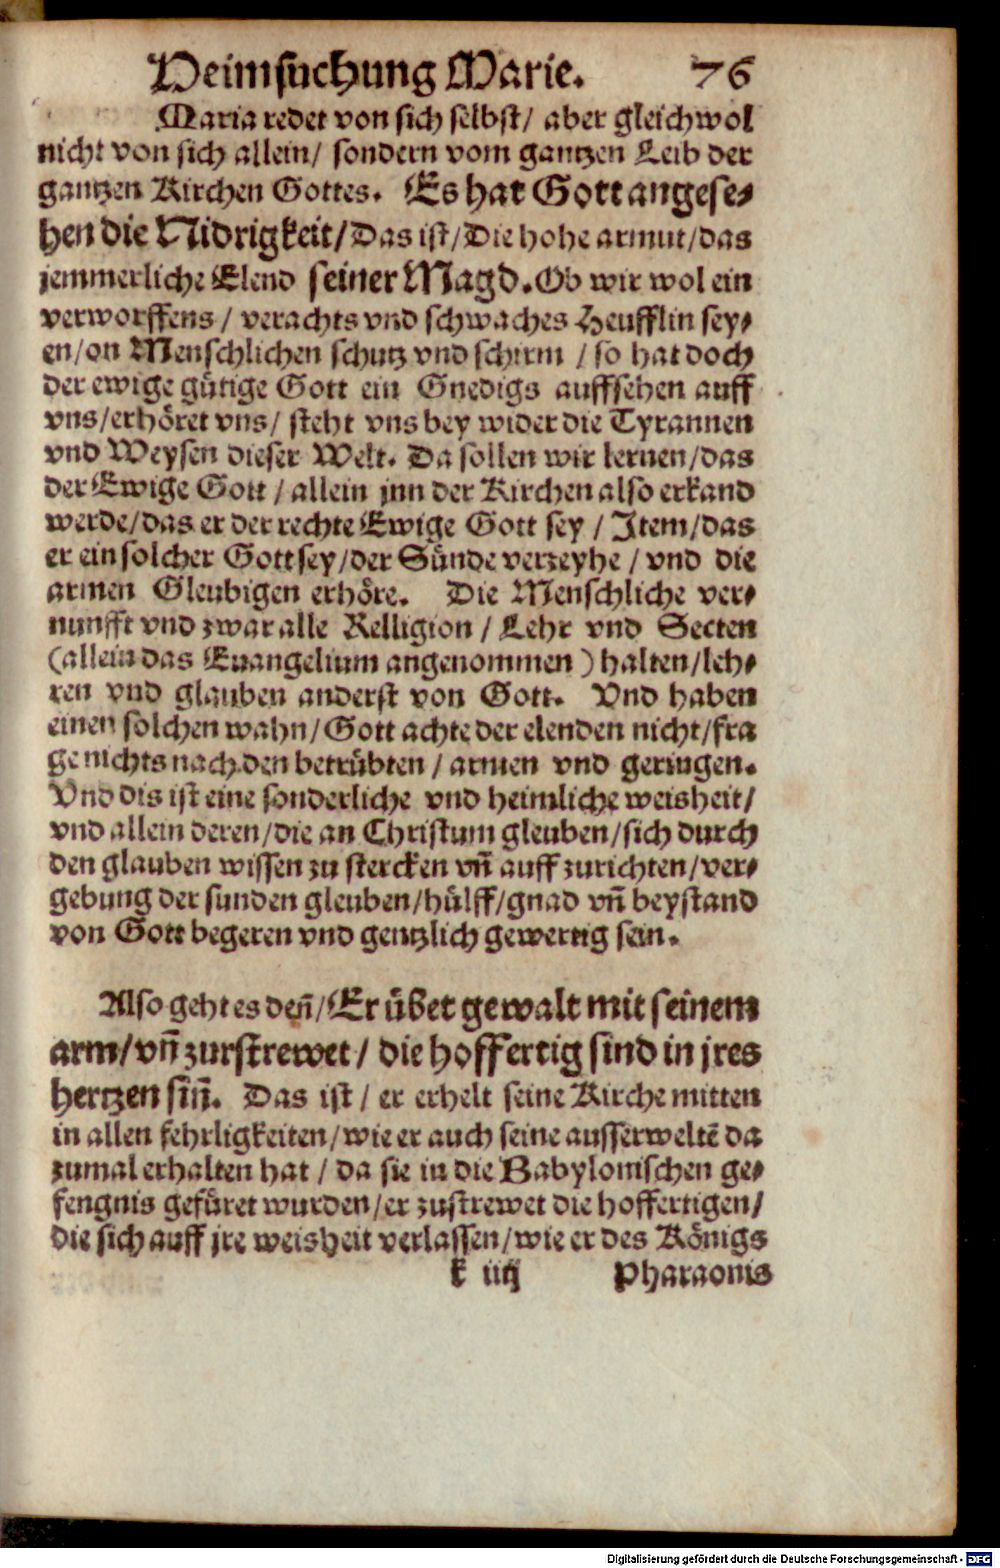 Heimsuchung Marie. 76
Maria redet von sich selbst/ aber gleichwol
nicht von sich allein/ sondern vom gantzen Leib der
gantzen Kirchen Gottes. Es hat Gott angese⸗
hen die Nidrigkeit/Das ist/Die hohe armut/das
jemmerliche Elend seiner Magd. Ob wir wol ein
verworffens/ verachts vnd schwaches Heufflin sey⸗
en/on Menschlichen schutz vnd schirm / so hat doch
der ewige gütige Gott ein Gnedigs auffsehen auff
vns/erhöret vns/ steht vns bey wider die Tyrannen
vnd Weysen dieser Welt. Da sollen wir lernen/das
der Ewige Gott / allein jnn der Kirchen also erkand
werde/das er der rechte Ewige Gott sey / Item/das
er ein solcher Gott sey/der Sünde verzeyhe / vnd die
armen Gleubigen erhöre. Die Menschliche ver⸗
nunfft vnd zwar alle Relligion / Lehr vnd Secten
(allein das Euangelium angenommen) halten/leh⸗
ren vnd glauben anderst von Gott. Vnd haben
einen solchen wahn/Gott achte der elenden nicht/fra
ge nichts nach den betrübten / armen vnd geringen.
Vnd dis ist eine sonderliche vnd heimliche weisheit/
vnd allein deren/die an Christum gleuben/sich durch
den glauben wissen zu stercken vñ auff zurichten/ver⸗
gebung der sunden gleuben/hülff/gnad vñ beystand
von Gott begeren vnd gentzlich gewertig sein.
Also geht es deñ/Er übet gewalt mit seinem
arm/vñ zurstrewet/ die hoffertig sind in jres
hertzen siñ. Das ist / er erhelt seine Kirche mitten
in allen fehrligkeiten/wie er auch seine ausserweltē da
zumal erhalten hat / da sie in die Babylonischen ge⸗
fengnis gefüret wurden/er zustrewet die hoffertigen/
die sich auff jre weisheit verlassen/wie er des Königs
k iiij Pharaonis
Digitalisierung gefördert durch die Deutsche Forschungsgemeinschaft - DFG